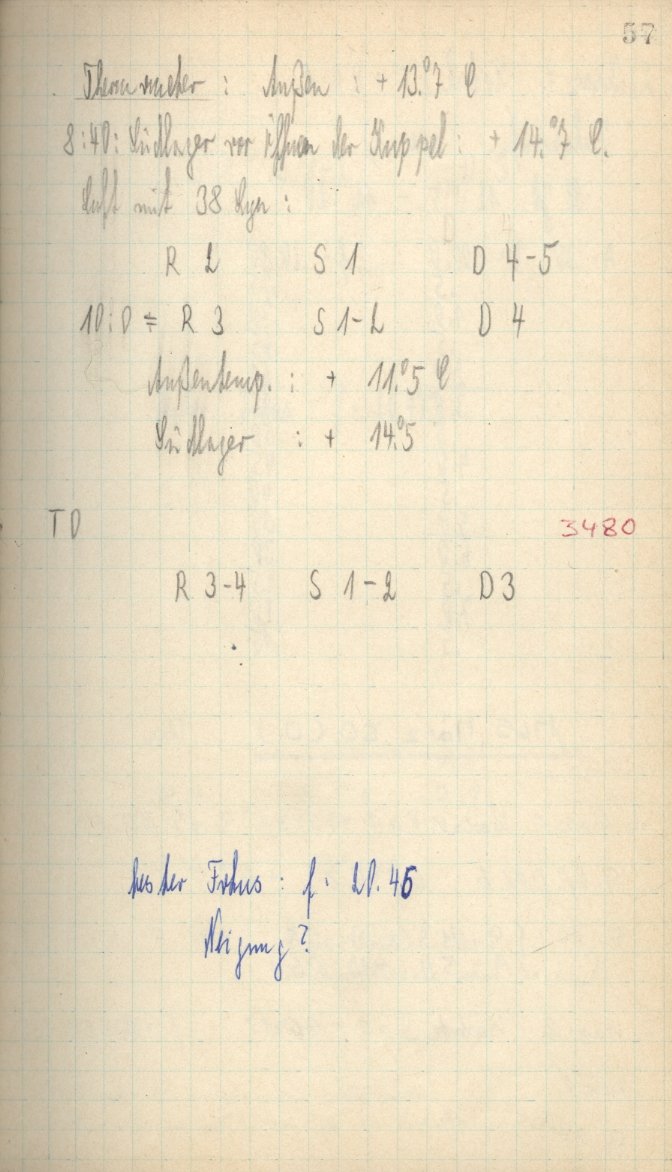 57
Thermometer : Außen : + 13.°7 C
8:40: Südlager vor Öffnen der Kuppel : + 14.°7 C.
Luft mit 38 Lyn :
R 2 S 1 D 4-5
10:0 = R 3 S 1-2 D 4
Außentemp. : + 11.°5 C
Südlager : + 14.°5
TD 3480
R 3-4 S 1-2 D 3
bester Fokus : f. 20.45
Neigung ?